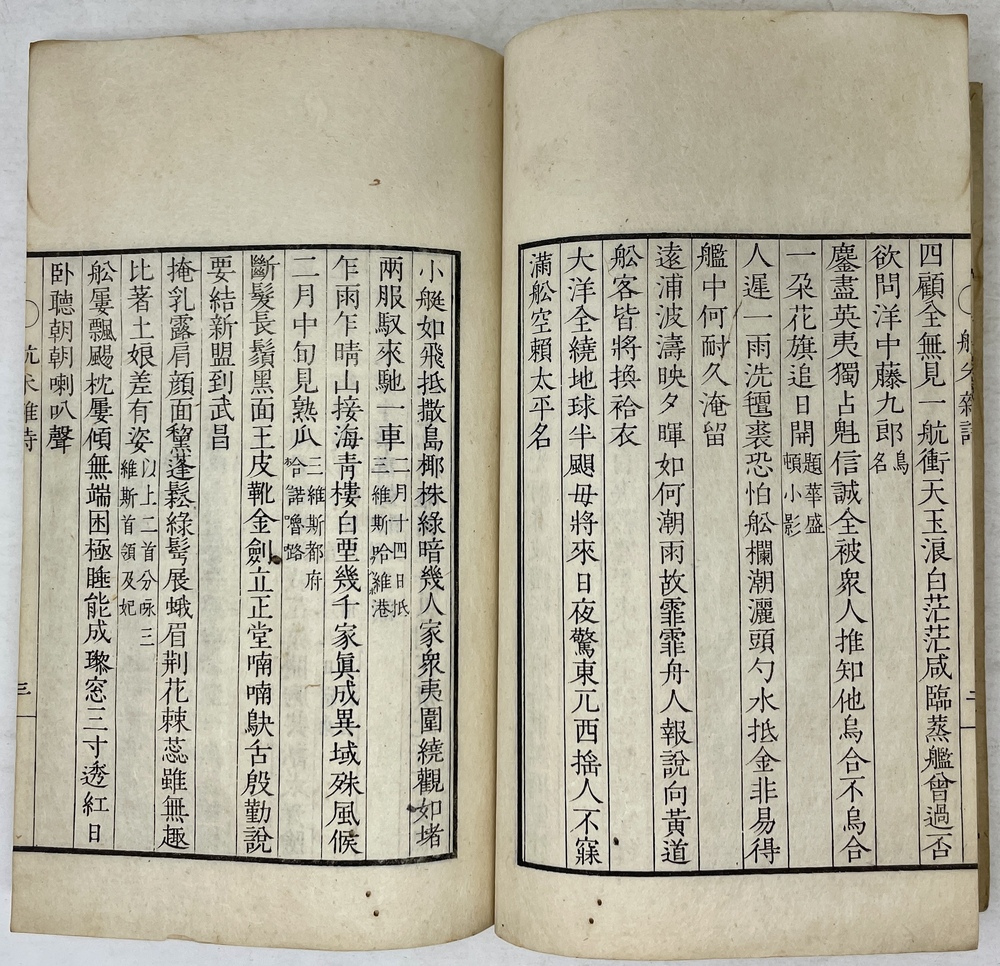 四顧全無見一航衝天玉浪白茫茫咸臨蒸艦曾過否
欲問洋中藤九郎鳥名
鏖盡英夷獨占魁信誠全被衆人推知他烏合不烏合
一朶花旗追日開題華盛頓小影
人遲一雨洗氊裘恐怕舩欄潮灑頭勺水抵金非易得
艦中何耐久淹留
遠浦波濤映夕暉如何潮雨故霏霏舟人報說向黃道
舩客皆將換袷衣
大洋全繞地球半颶毋將來日夜驚東兀西搖人不寐
滿舩空賴太平名
小艇如飛抵撒島椰株綠暗幾人家衆夷圍繞觀如堵
兩服馭來馳一車二月十四日抵三維斯哈維港
乍雨乍晴山接海靑樓白堊幾千家眞成異域殊風候
二月中旬見熟瓜三維斯都府哈諾嚕路
斷髮長鬚黑面王皮靴金劍立正堂喃喃鴃舌殷勤說
要結新盟到武昌
掩乳露肩顏面黧蓬鬆綠髩展蛾眉荆花棘蕊雖無趣
比著土娘差有姿以上二首分咏三維斯首領及妃
舩屢飄颺枕屢傾無端困極睡能成瓈窓三寸透紅日
卧聽朝朝喇叭聲
三